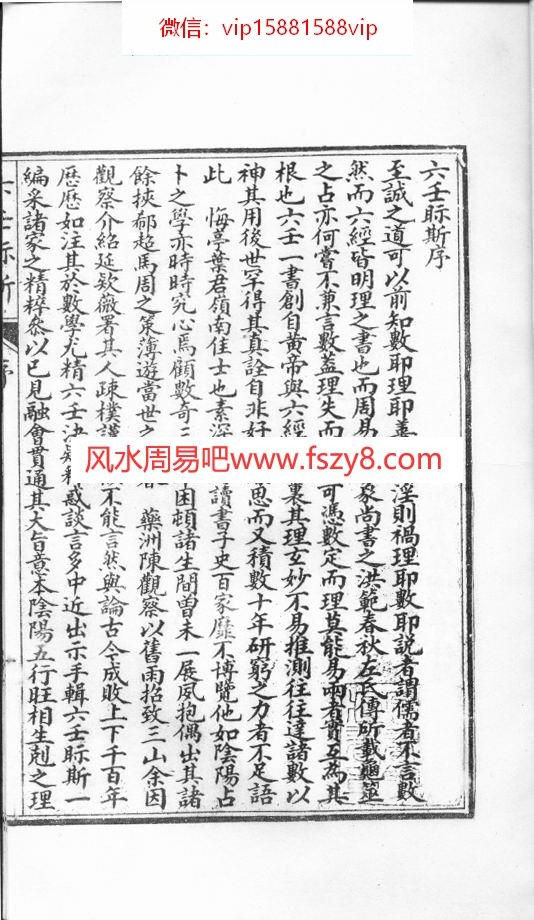 微信：vip15881588vip
六壬眎斯序
至誠之道可以前知數耶理耶善淫則禍理耶數耶説者謂儒者不言數
然而六經皆明理之書也而周易象尚書之洪範春秋左氏傳所載龜筮
之占亦何嘗不兼言數蓋理失而可憑數定而理莫能易兩者實互為其
根也六壬一書創自黄帝與六經裏其理玄妙不易推測往往達諸數以
神其用後世罕得其真詮自非好思而又積數十年研窮之力者不足語
此 悔亭葉君嶺南佳士也素深讀書子史百家靡不博覽他如陰陽占
卜之學亦時時究心焉顧數奇三困頓諸生間曽未一展夙抱偶出其諸
餘挾郗超馬周之策薄遊當世之 藥洲陳觀察以舊雨招致三山余因
觀察介紹延欵薇署其人疎樸謹不能言然與論古今成敗上下千百年
歴歴如注其於數學尤精六壬決疑釋惑談言多中近出示手輯六壬眎斯一
編采諸家之精粹叅以已見融會貫通其大旨意本陰陽五行旺相生剋之理
六壬眎斯 序
风水周易吧www.fszy8.com